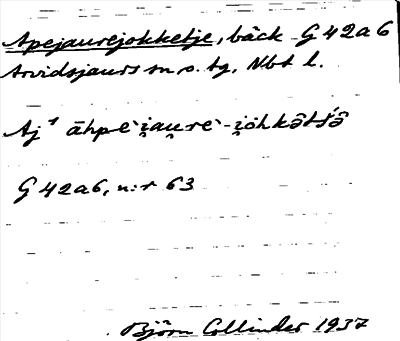 Apejaurejokketje, bäck G 42 a 6
Arvidsjaurs sn o. tg, Nbt l.
Aj¹ āhpeˋi̯au̯reˋ-i̯ohkətś́ə
G 42 a 6, n:r 63
Björn Collinder 1937